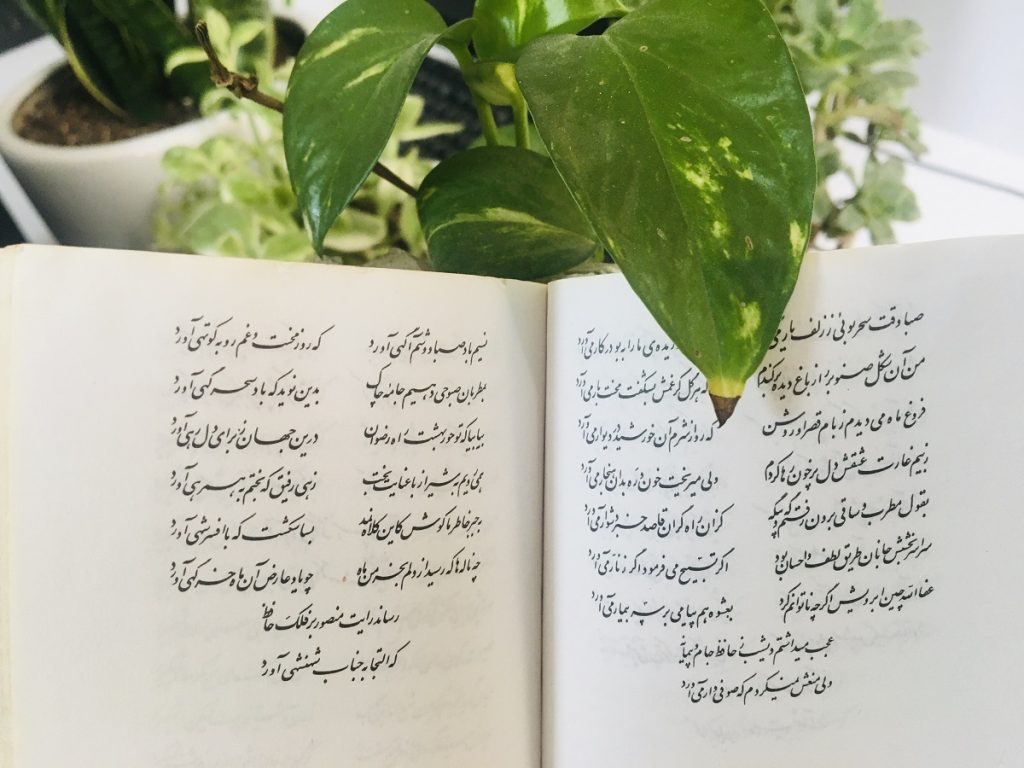 صبا وقت سحر بوئی ز زلف یار می ما را به بو در کار می‌آورد
من آن شکل صنوبر را ز باغ دیده برکندم که هر گل کز غمش بشکفت محنت بار می‌آورد
فروغ ماه می‌دیدم ز بام قصر او روشن که رو از شرم آن خورشید در دیوار می‌آورد
ز بیم غارت عشقش دل پر خون رها کردم ولی میریخت خون و ره بدان هنجار می‌آورد
بقول مطرب و ساقی برون رفتم گه و بیگه کزان راه گران قاصد خبر دشوار می‌آورد
سراسر بخشش جانان طریق لطف و احسان بود اگر تسبیح می‌فرمود اگر زنار می‌آورد
عفا الله چین ابرویش اگر چه ناتوانم کرد بعشوه هم پیامی بر سر بیمار می‌آورد
عجب میداشتم دیشب ز حافظ جام و پیمانه
ولی منعش نمیکردم که صوفی وار می‌آورد
نسیم باد صبا دوشم آگهی آورد که روز محنت و غم رو به کوتهی آورد
بمطربان صبوحی دهیم جامه چاک بدین نوید که باد سحرگهی آورد
بیا بیا که تو حور بهشت را رضوان درین جهان ز برای دل رهی آورد
همی رویم به شیراز با عنایت بخت زهی رفیق که بختم به همرهی آورد
به جبر خاطر ما کوش کاین کلاه نمد بسا شکست که با افسر شهی آورد
چه ناله ها که رسید از دلم بخرمن ماه چو یاد عارض آن ماه خرگهی آورد
رساند رایت منصور بر فلک حافظ
که التجا به جناب شهنشهی آورد